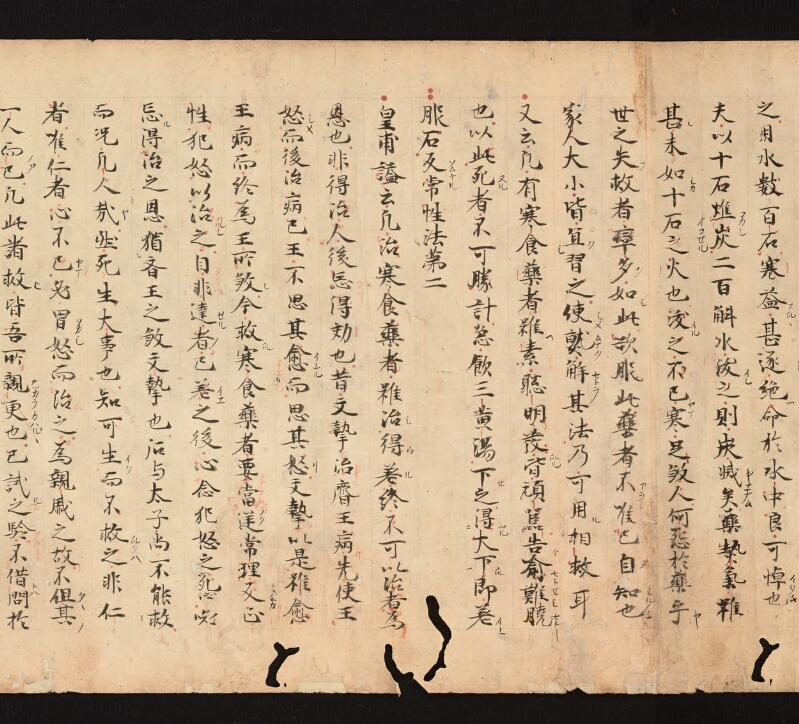 之用水數百石寒益甚遂絕命於水中良可悼也
夫以十石燋炭二百斛水沃之則炭滅矣藥熱氣雖
甚未如十石之火也沃之不已寒足煞人何怨於藥乎
世之失救者例多如此欲服此藥者不唯已自知也
家人大小皆宜習之使熟解其法乃可用相救耳
又云凡有寒食藥者雖素聰明發皆頑嚚告喻難曉
也以此死者不可勝計急飲三黃湯下之得大下即差
服石反常性法第二
皇甫謐云凡治寒食藥者雖治得差終不可以治者為
恩也非得治人後忘得効也昔文摯治齊王病先使王
怒而後治病已王不思其愈而思其怒文摯以是雖愈
王病而終為王所煞今救寒食藥者要當逆常理反正
性犯怒以治之自非達者已差之後心念犯怒之怨必
忘得治之恩猶齊王之煞文摯也后与太子尚不能救
而況凡人哉然死生大事也知可生而不救之非仁
者唯仁者心不已必冒怒而治之為親戚之故不但其
一人而已凡此諸救皆吾所親更也已試之驗不借問於